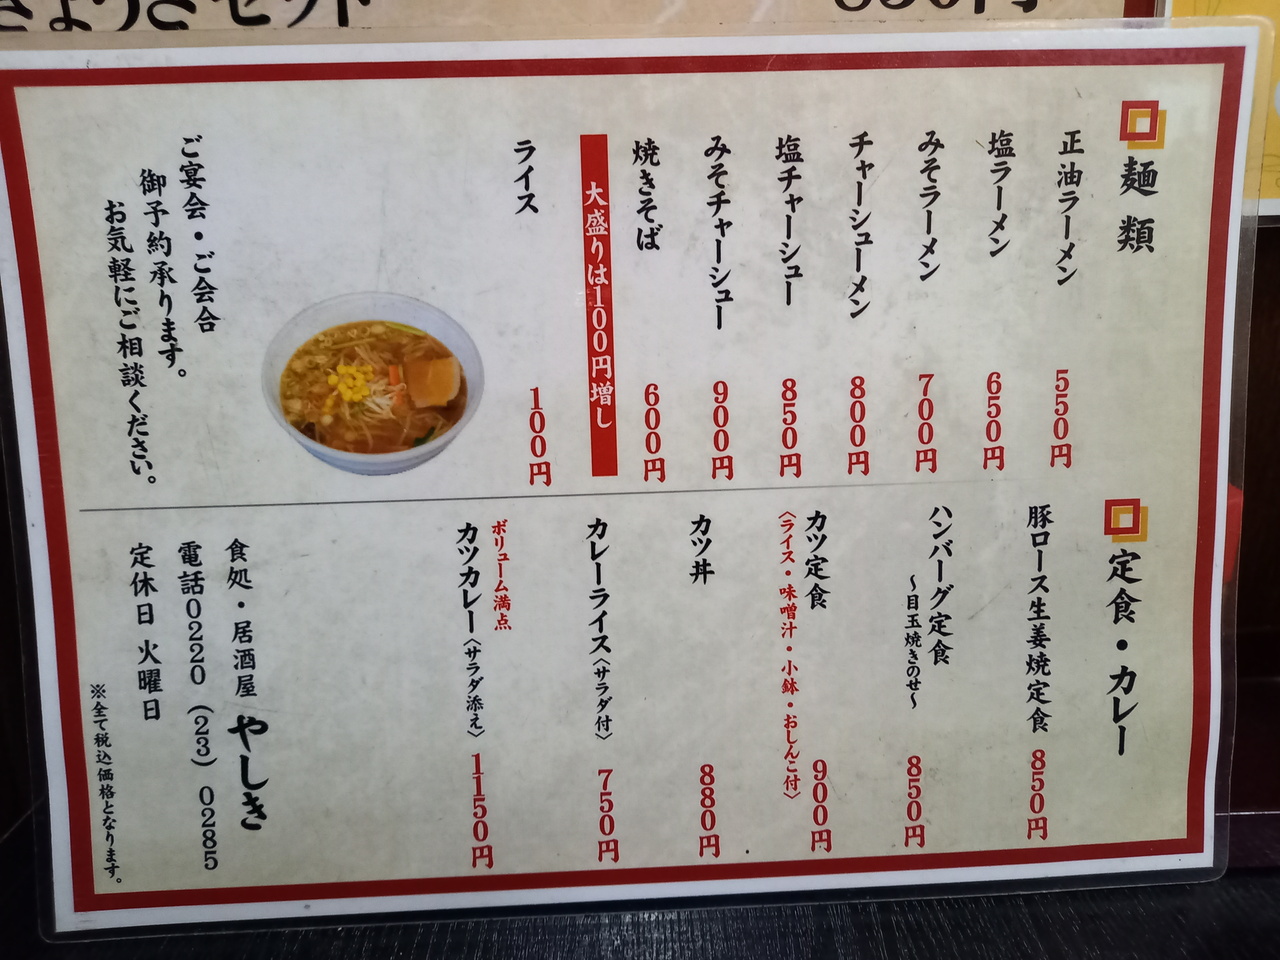 ぎょうざセット
850円
麺類
正油ラーメン 550円
塩ラーメン 650円
みそラーメン 700円
チャーシューメン 800円
塩チャーシュー 850円
みそチャーシュー 900円
焼きそば 600円
大盛りは100円増し
ライス 100円
ご宴会・ご会合
御予約承ります。
お気軽にご相談ください。
定食・カレー
豚ロース生姜焼定食 850円
ハンバーグ定食 850円
～目玉焼きのせ～
カツ定食 900円
〈ライス・味噌汁・小鉢・おしんこ付〉
カツ丼 880円
カレーライス〈サラダ付〉 750円
ボリューム満点
カツカレー〈サラダ添え〉 1150円
食処・居酒屋 やしき
電話0220(23)0285
定休日 火曜日
※全て税込価格となります。